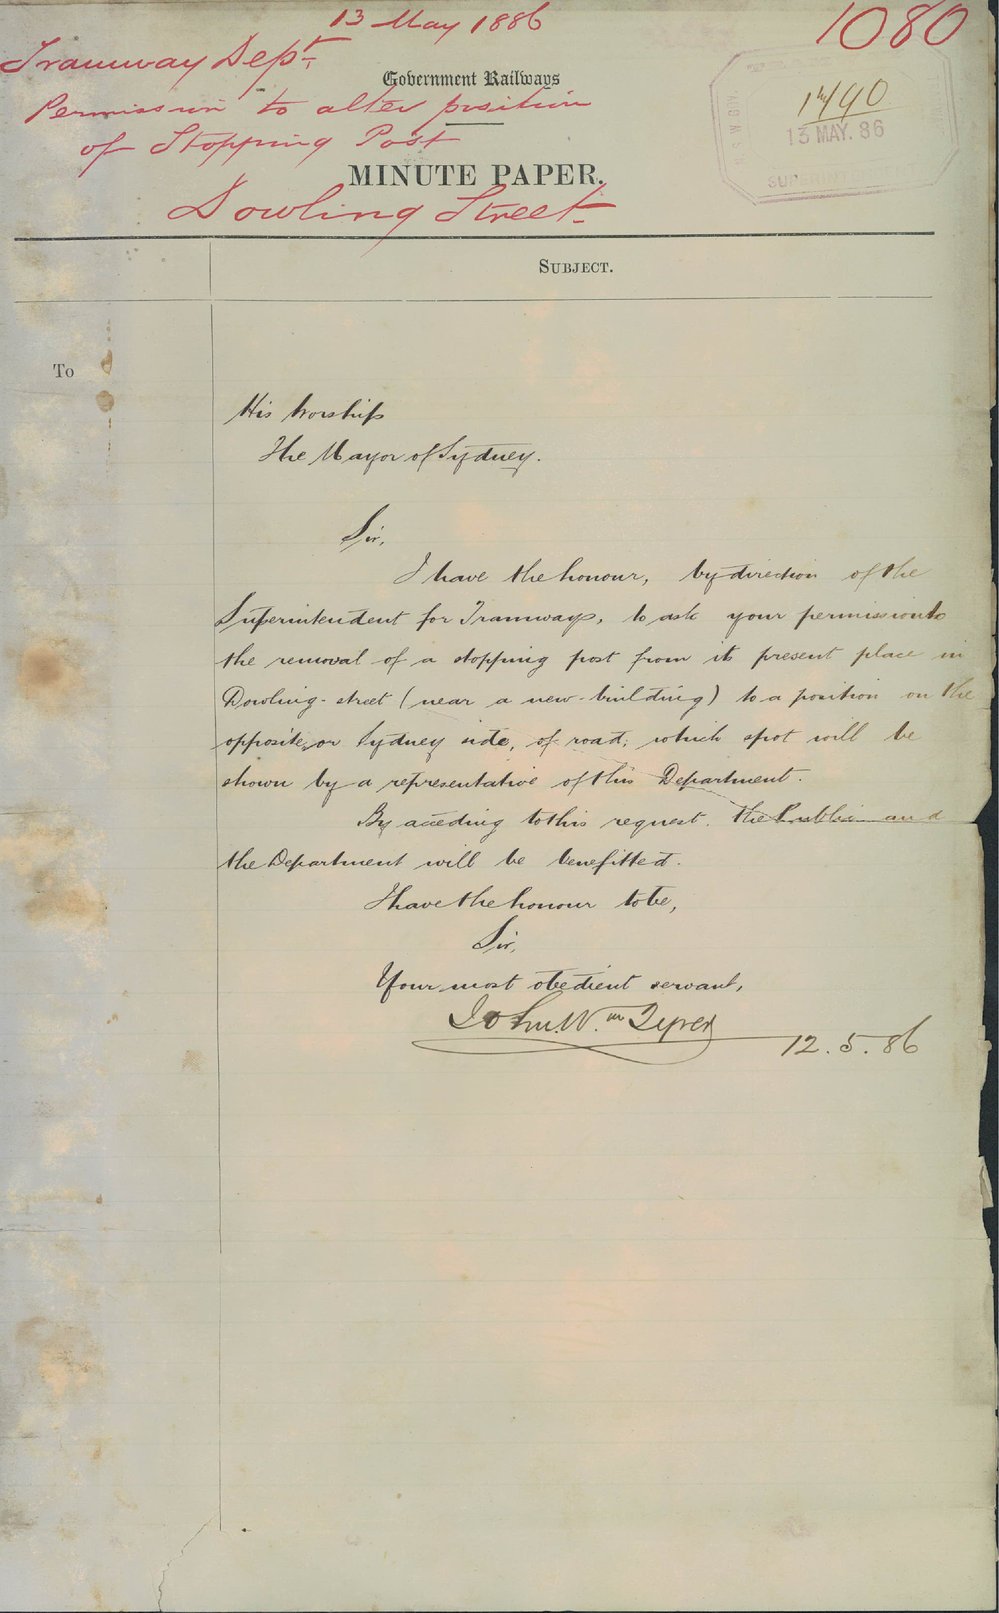 13 May 1886
1080
Tramway Dept.
Government Railways
Permission to alter position
of Stopping Post
13 MAY. 86
MINUTE PAPER.
Dowling Street
SUBJECT.
To
His Worship
The Mayor of Sydney.
Sir,
I have the honour, by direction of the
Superintendent for Tramways, to ask your permission to
the removal of a stopping post from its present place in
Dowling-street (near a new-building) to a position on the
opposite, or Sydney side, of road; which spot will be
shown by a representative of this Department.
By acceding to this request. the Public and
the Department will be benefitted.
I have the honour to be,
Sir,
Your most obedient servant,
John. Wm
12.5.86